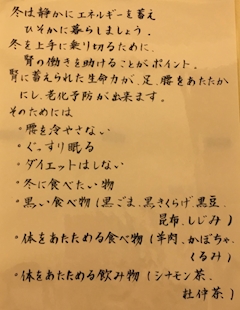 冬は静かにエネルギーを蓄え
ひそかに暮らしましょう.
冬を上手に乗り切るために、
腎の働きを助けることがポイント.
腎に蓄えられた生命力が、足、腰をあたたか
にし、老化予防が出来ます.
そのためには
・腰を冷やさない
・ぐっすり眠る
・ダイエットはしない
・冬に食べたい物
・黒い食べ物(黒ごま、黒きくらげ、黒豆、
昆布、しじみ)
・体をあたためる食べ物(羊肉、かぼちゃ、
くるみ)
・体をあたためる飲み物(シナモン茶、
杜仲茶)